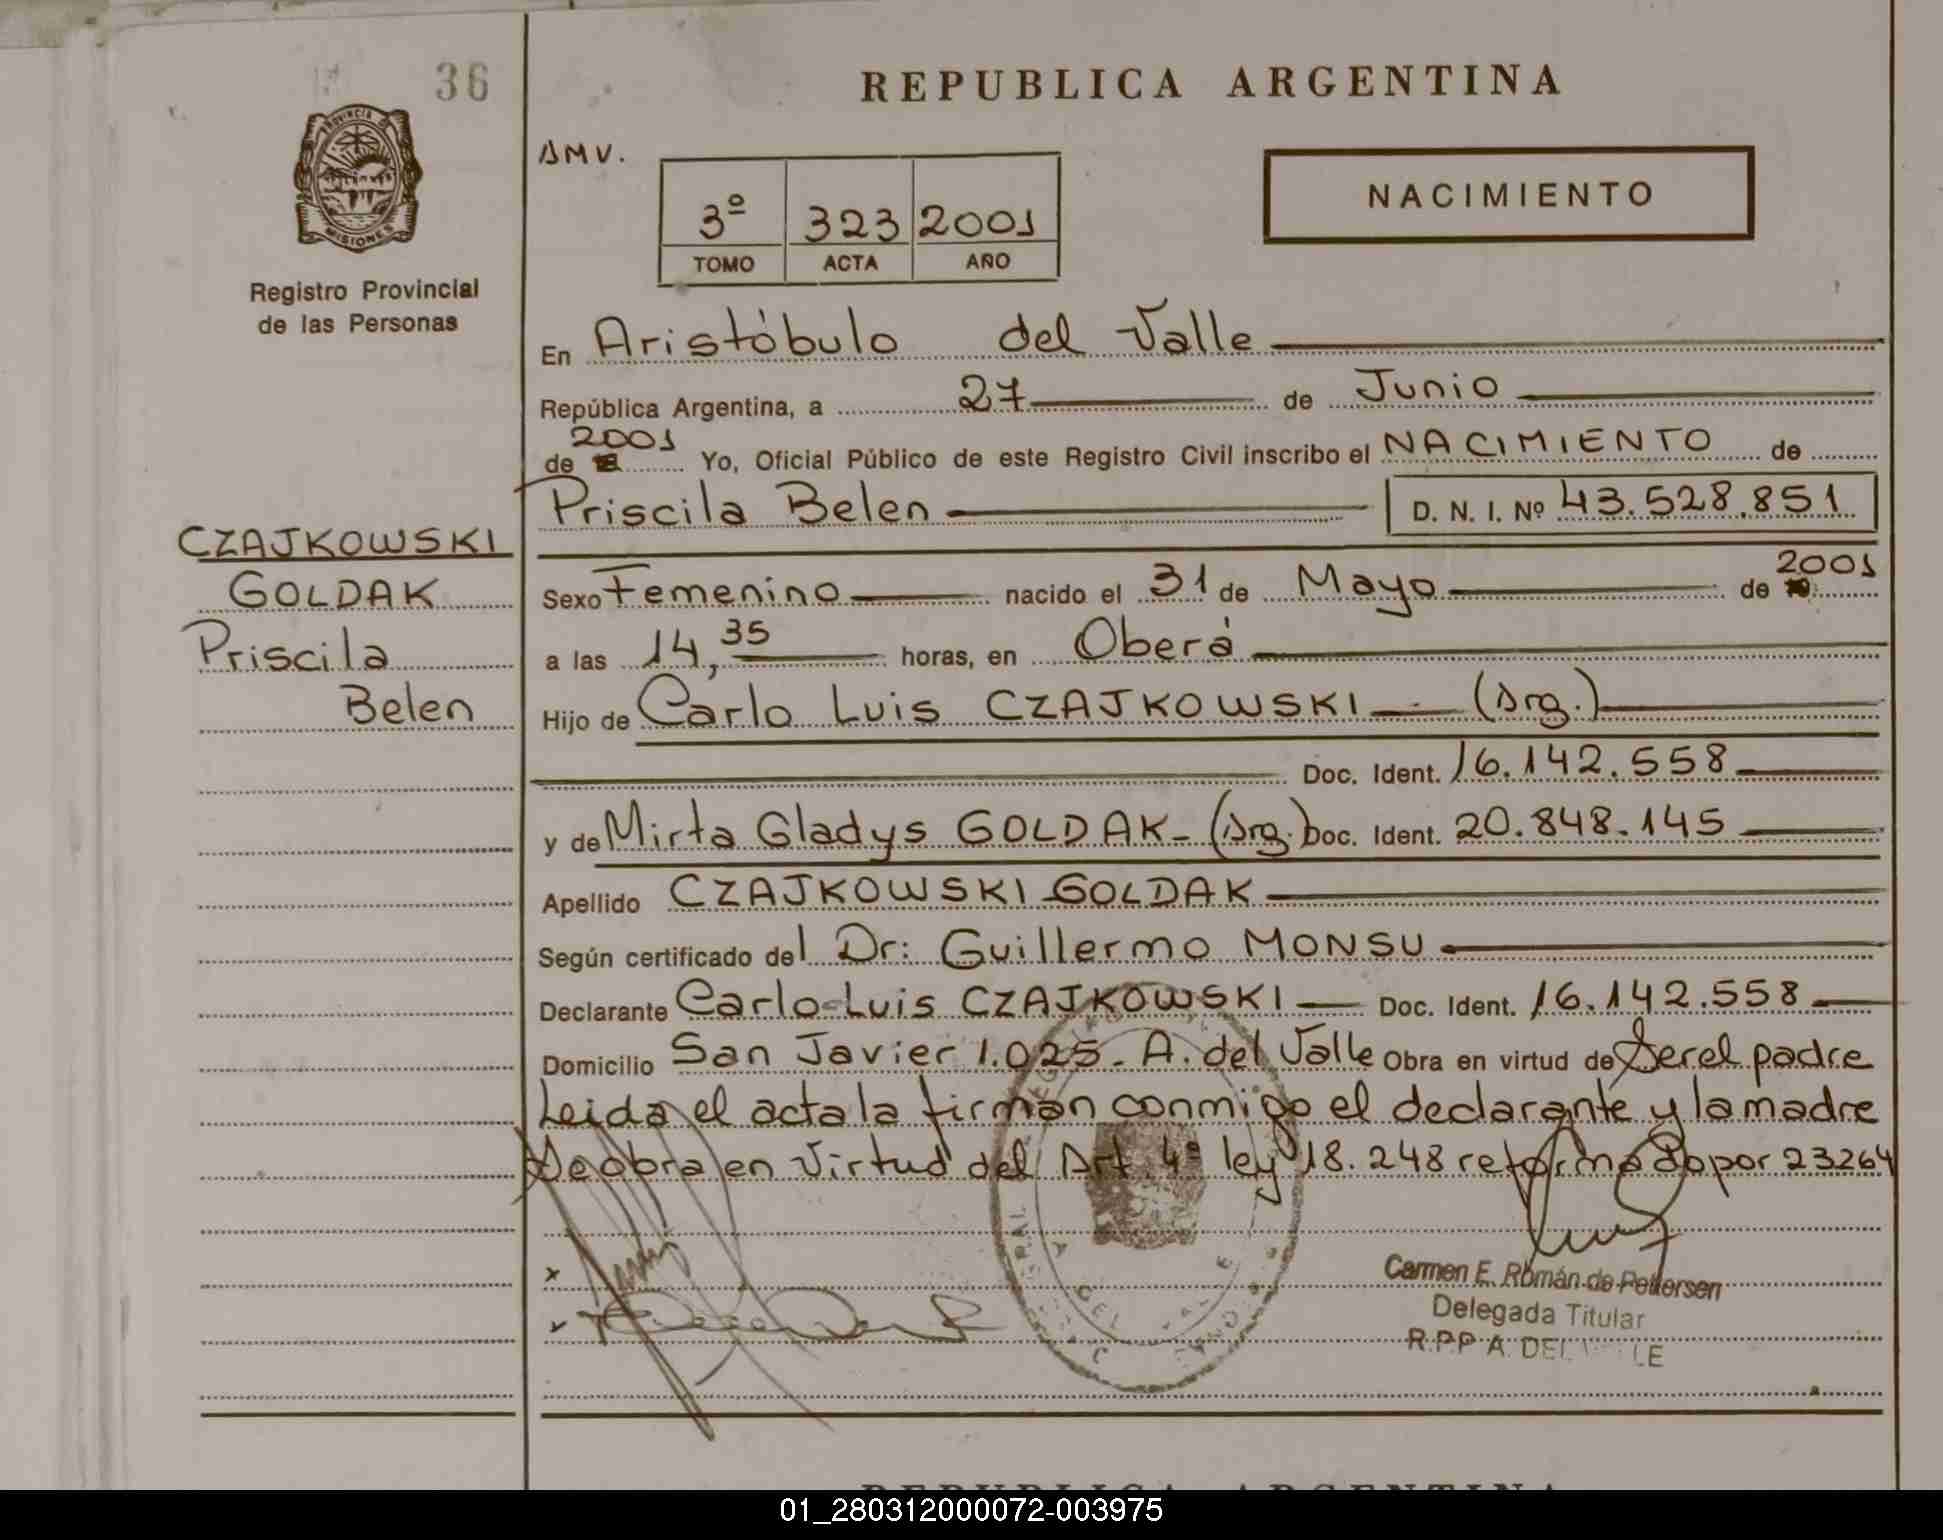 36
REPUBLICA ARGENTINA
AMV.
NACIMIENTO
3º 323 2001
TOMO ACTA AÑO
PROVINCIA DE
MISIONES
Registro Provincial
de las Personas
En Aristóbulo del Valle
República Argentina, a 27 de Junio
de 2001 Yo, Oficial Público de este Registro Civil inscribo el NACIMIENTO de
Priscila Belen D. N. I. Nº 43.528.851
CZAJKOWSKI
GOLDAK
Priscila
Belen
Sexo Femenino nacido el 31 de Mayo de 2001
a las 14,35 horas, en Oberá
Hijo de Carlo Luis CZAJKOWSKI (Arg.)
Doc. Ident. 16.142.558
y de Mirta Gladys GOLDAK - (Arg.) Doc. Ident. 20.848.145
Apellido CZAJKOWSKI GOLDAK
Según certificado del Dr: Guillermo MONSU
Declarante Carlo Luis CZAJKOWSKI Doc. Ident. 16.142.558
Domicilio San Javier 1.025 - A. del Valle Obra en virtud de Ser el padre
Leida el acta la firman conmigo el declarante y la madre
Se obra en virtud del Art. 4º ley 18.248 reformado por 23264
Carmen E. Román de Pettersen
Delegada Titular
R.P.P A. DEL VALLE
REPUBLICA ARGENTINA
01_280312000072-003975